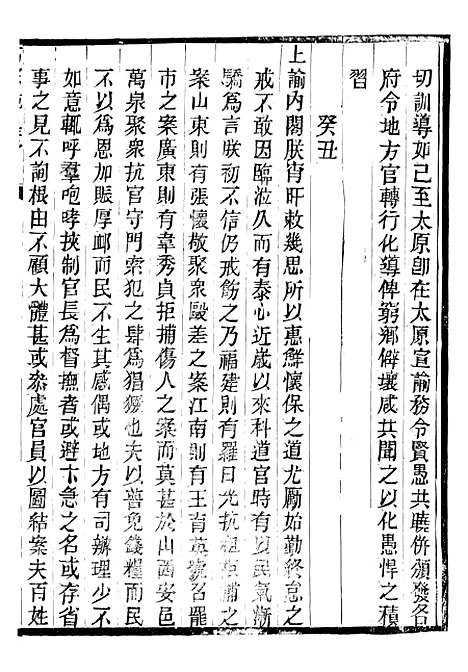 切訓導如已至太原卽在太原宣諭務令賢愚共曉併頒發各
府令地方官轉行化導俾窮鄉僻壤咸共聞之以化愚悍之積
習
癸丑
上諭內閣朕宵旰敕幾思所以惠鮮懷保之道尤厪始勤終怠之
戒不敢因臨涖久而有泰心近歲以來科道官時有以民氣漸
驕爲言朕初不信仍戒飭之乃福建則有羅日光抗租拒捕之
案山東則有張懷敬聚衆毆差之案江南則有王育英號召罷
市之案廣東則有韋秀貞拒捕傷人之案而莫甚於山西安邑
萬泉聚衆抗官守門索犯之肆爲猖獗也夫以普免錢糧而民
不以爲恩加賑厚衈而民不生其感偶或地方有司辦理少不
如意輒呼羣咆哮挾制官長爲督撫者或避卞急之名或存省
事之見不詢根由不顧大體甚或叅處官員以圖結案夫百姓